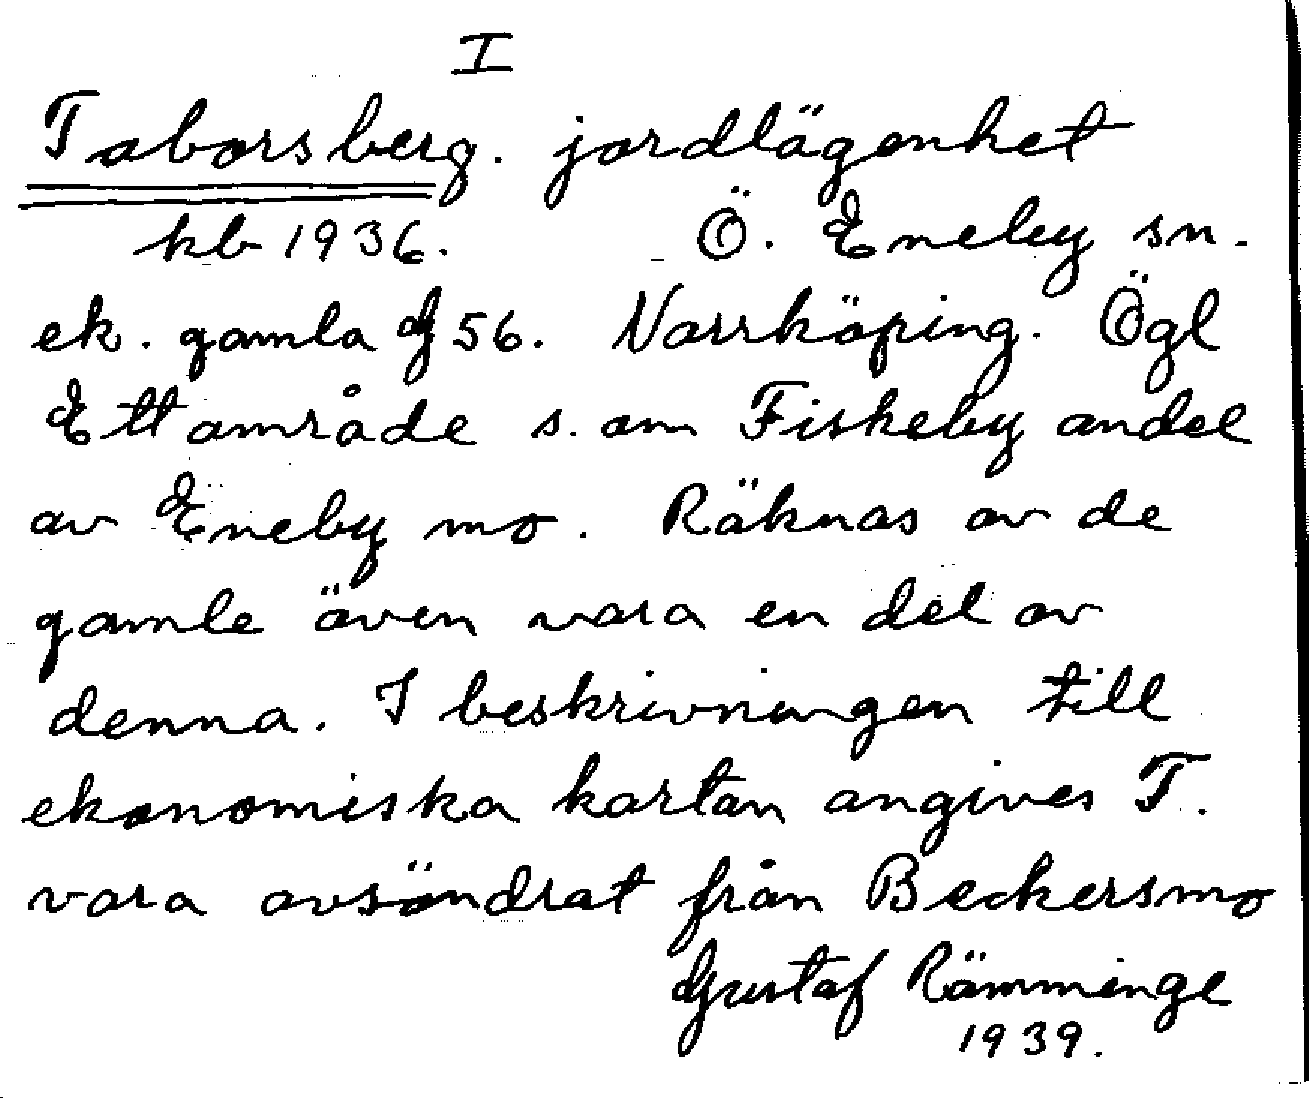 I
Taborsberg. jordlägenhet
kb 1936. Ö. Eneby sn.
ek. gamla g 56. Norrköping. Ögl
Ett område s. om Fiskeby andel
av Eneby mo. Räknas av de
gamle även vara en del av
denna. I beskrivningen till
ekonomiska kartan angives T.
vara avsöndrat från Beckersmo
Gustaf Rämminge
1939.